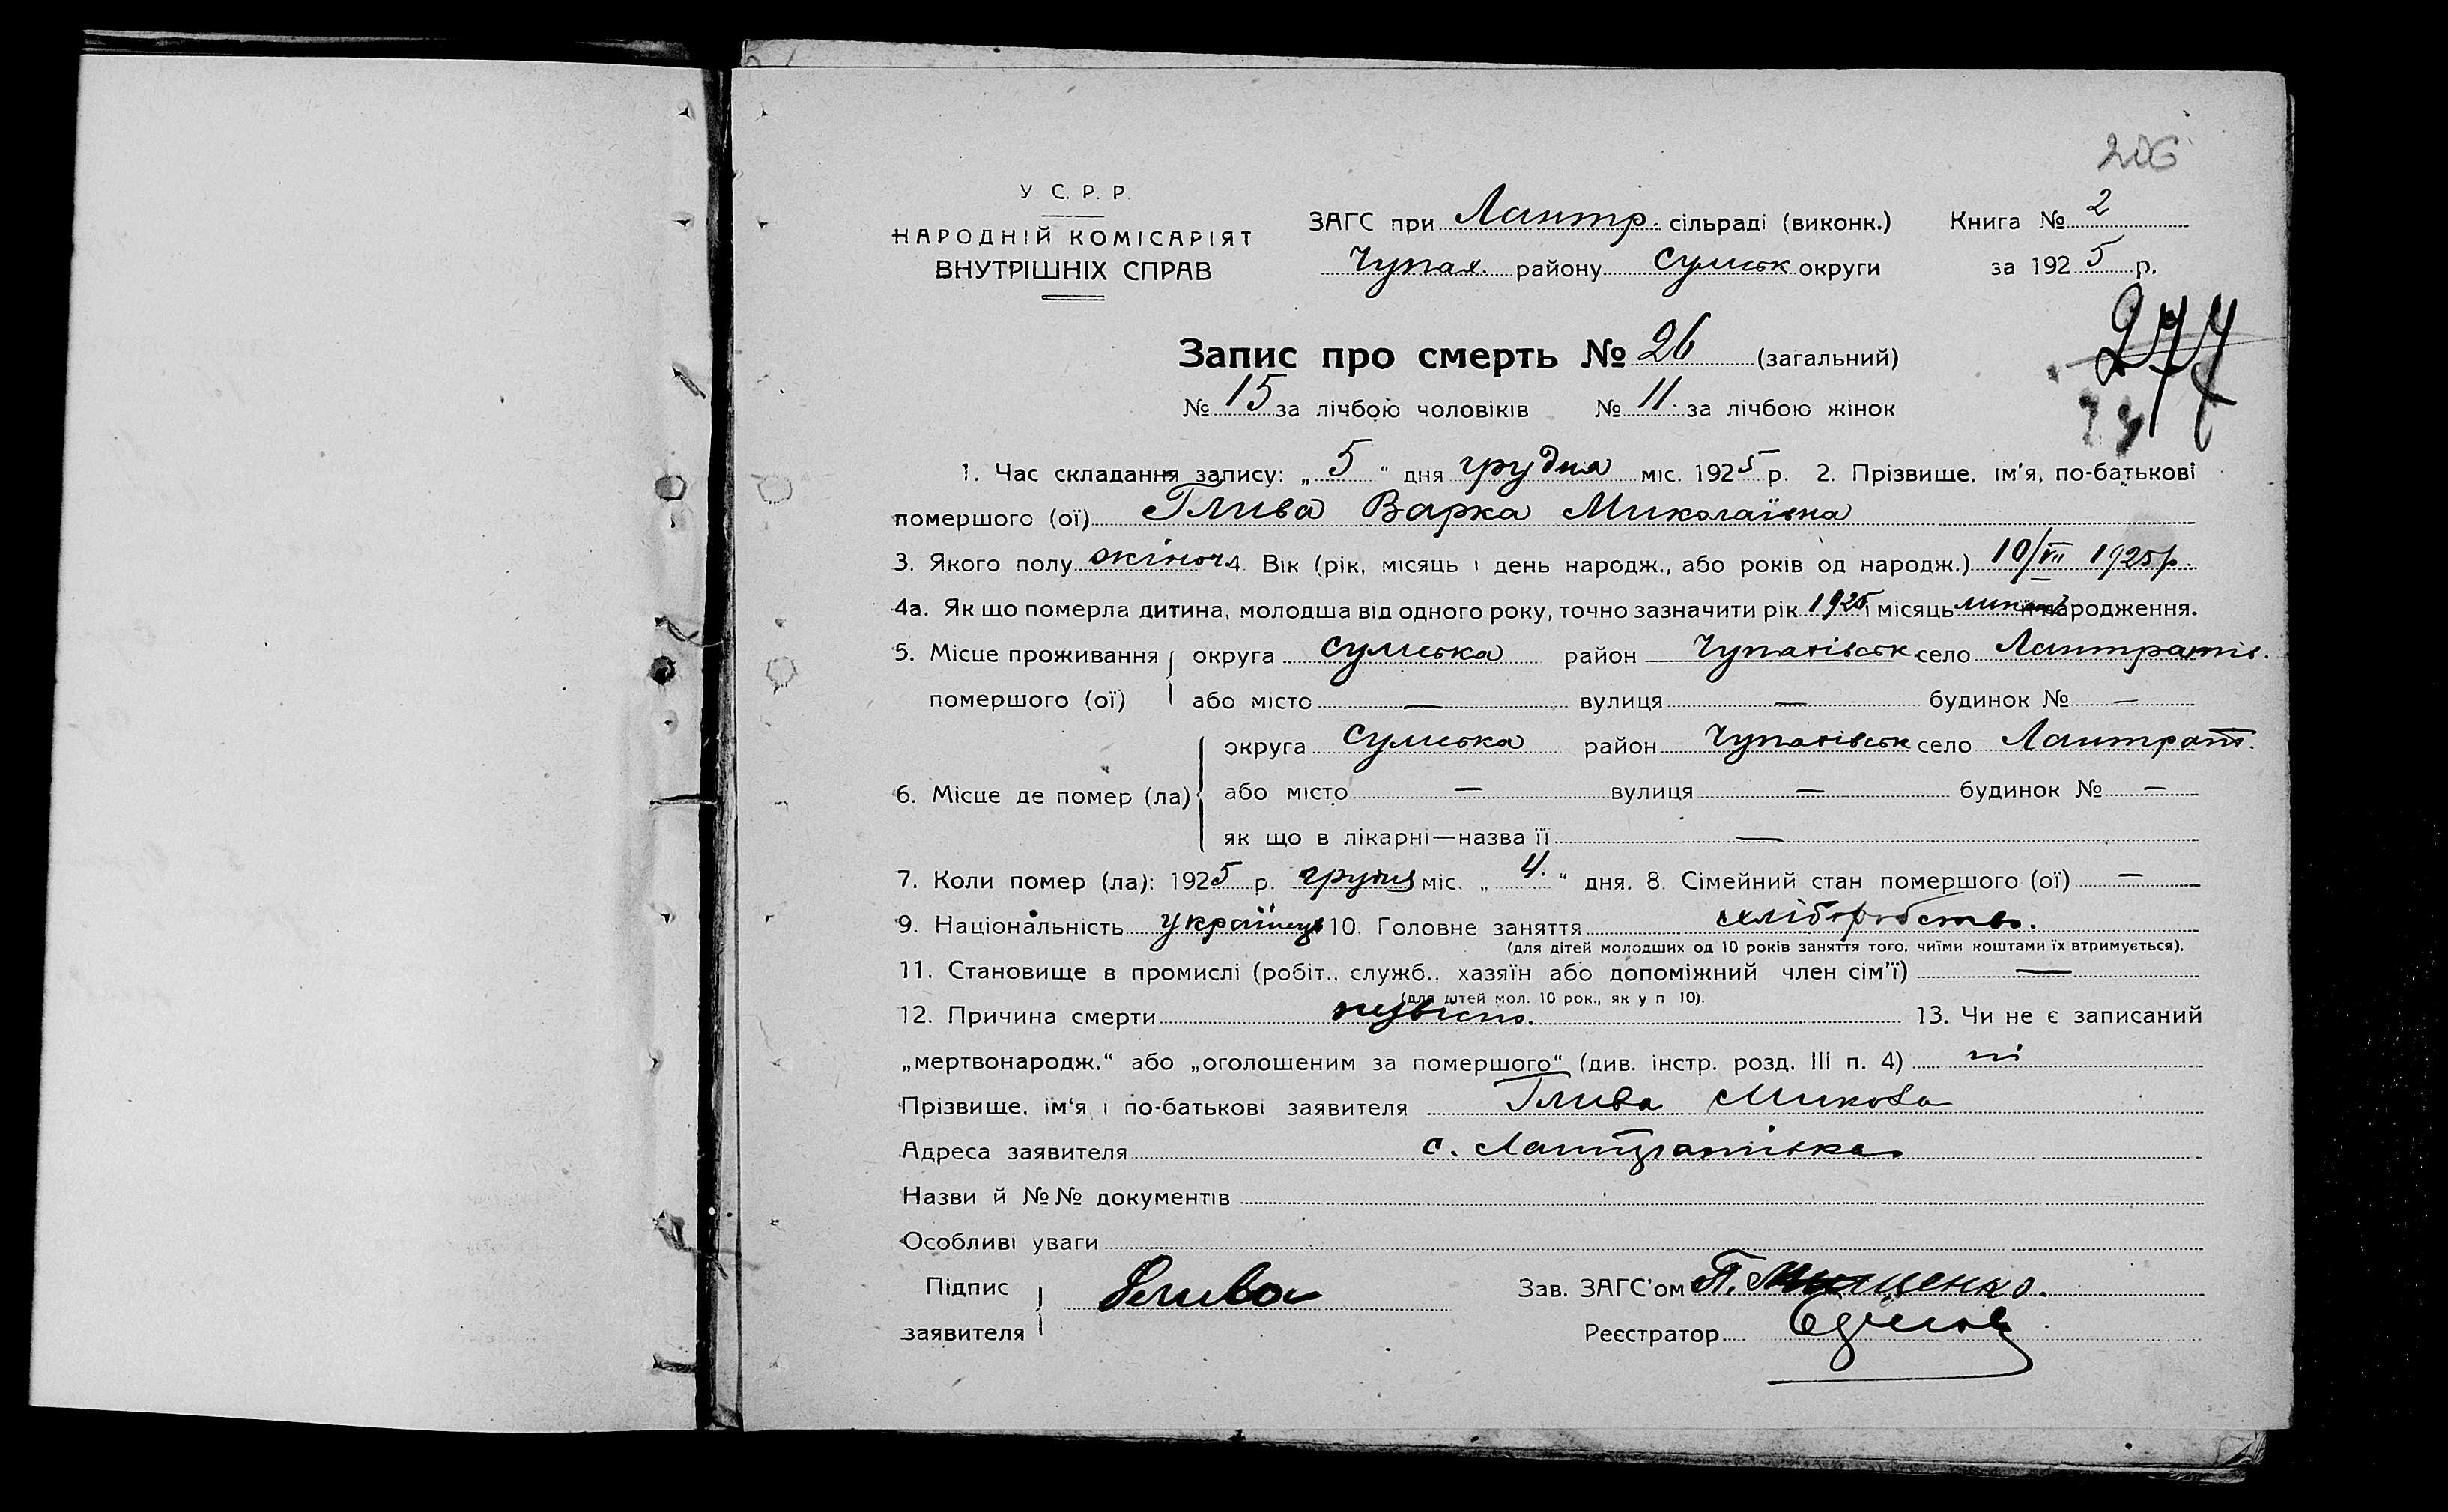 206
У С. Р. Р.
НАРОДНІЙ КОМІСАРІЯТ
ВНУТРІШНІХ СПРАВ
ЗАГС при Лантр. сільраді (виконк.) Книга № 2
Чупах. району Сумськ округи за 1925 р.
277
Запис про смерть № 26 (загальний)
№ 15 за лічбою чоловіків № 11. за лічбою жінок
1. Час складання запису: „ 5 “ дня грудня міс. 1925 р. 2. Прізвище, ім'я, по-батькові
помершого (ої) Глива Варка Миколаївна
3. Якого полу жіноч. 4. Вік (рік, місяць і день народж., або років од народж.) 10/VII 1925 р.
4а. Як що померла дитина, молодша від одного року, точно зазначити рік 1925 і місяць її народження.
5. Місце проживання округа Сумська район Чупахівськ село Лантратів.
помершого (ої) або місто — вулиця — будинок № —
округа Сумська район Чупахівськ село Лантрат.
6. Місце де помер (ла) або місто — вулиця — будинок № —
як що в лікарні—назва її —
7. Коли помер (ла): 1925 р. грудня міс. „ 4. “ дня. 8. Сімейний стан помершого (ої) —
9. Національність українець 10. Головне заняття хліборобство.
(для дітей молодших од 10 років заняття того, чиїми коштами їх втримується).
11. Становище в промислі (робіт., служб., хазяїн або допоміжний член сім'ї) —
(для дітей мол. 10 рок., як у п 10).
12. Причина смерти 13. Чи не є записаний
„мертвонародж.“ або „оголошеним за помершого“ (див. інстр. розд. III п. 4) ні
Прізвище, ім'я і по-батькові заявителя Глива Микола
Адреса заявителя с. Лантратівка
Назви й №№ документів
Особливі уваги
Підпис
заявителя Глива
Зав. ЗАГС'ом П.
Реєстратор